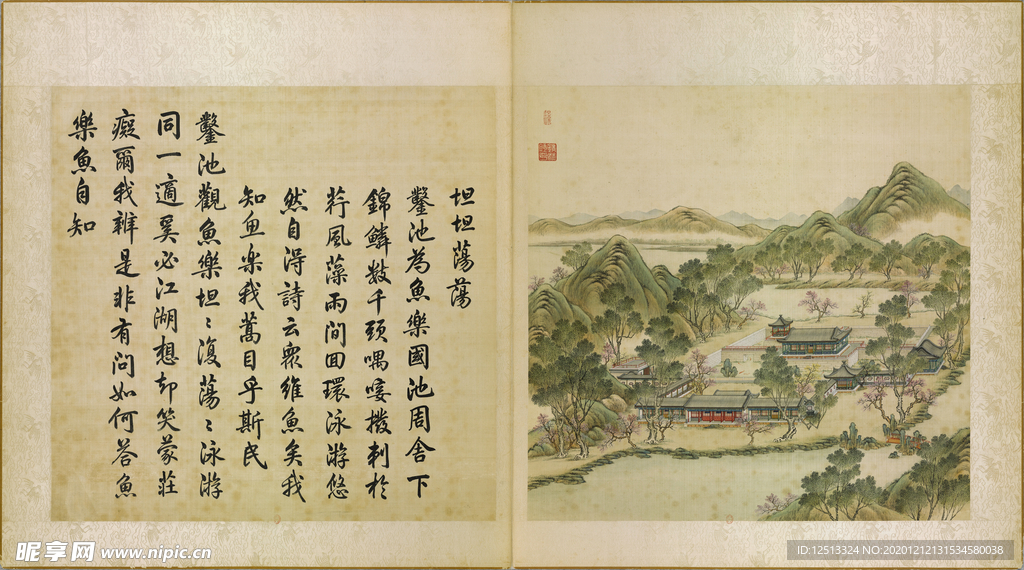 坦坦蕩蕩
鑿池為魚樂國池周舍下
錦鱗數千頭喁唼撥刺於
荇風藻雨間回環泳游悠
然自得詩云衆維魚矣我
知魚樂我蒿目乎斯民
鑿池觀魚樂坦〻復蕩〻泳游
同一適奚必江湖想却笑蒙莊
癡爾我辨是非有問如何答魚
樂魚自知
昵享网 www.nipic.cn
ID:12513324 NO:20201212131534580038